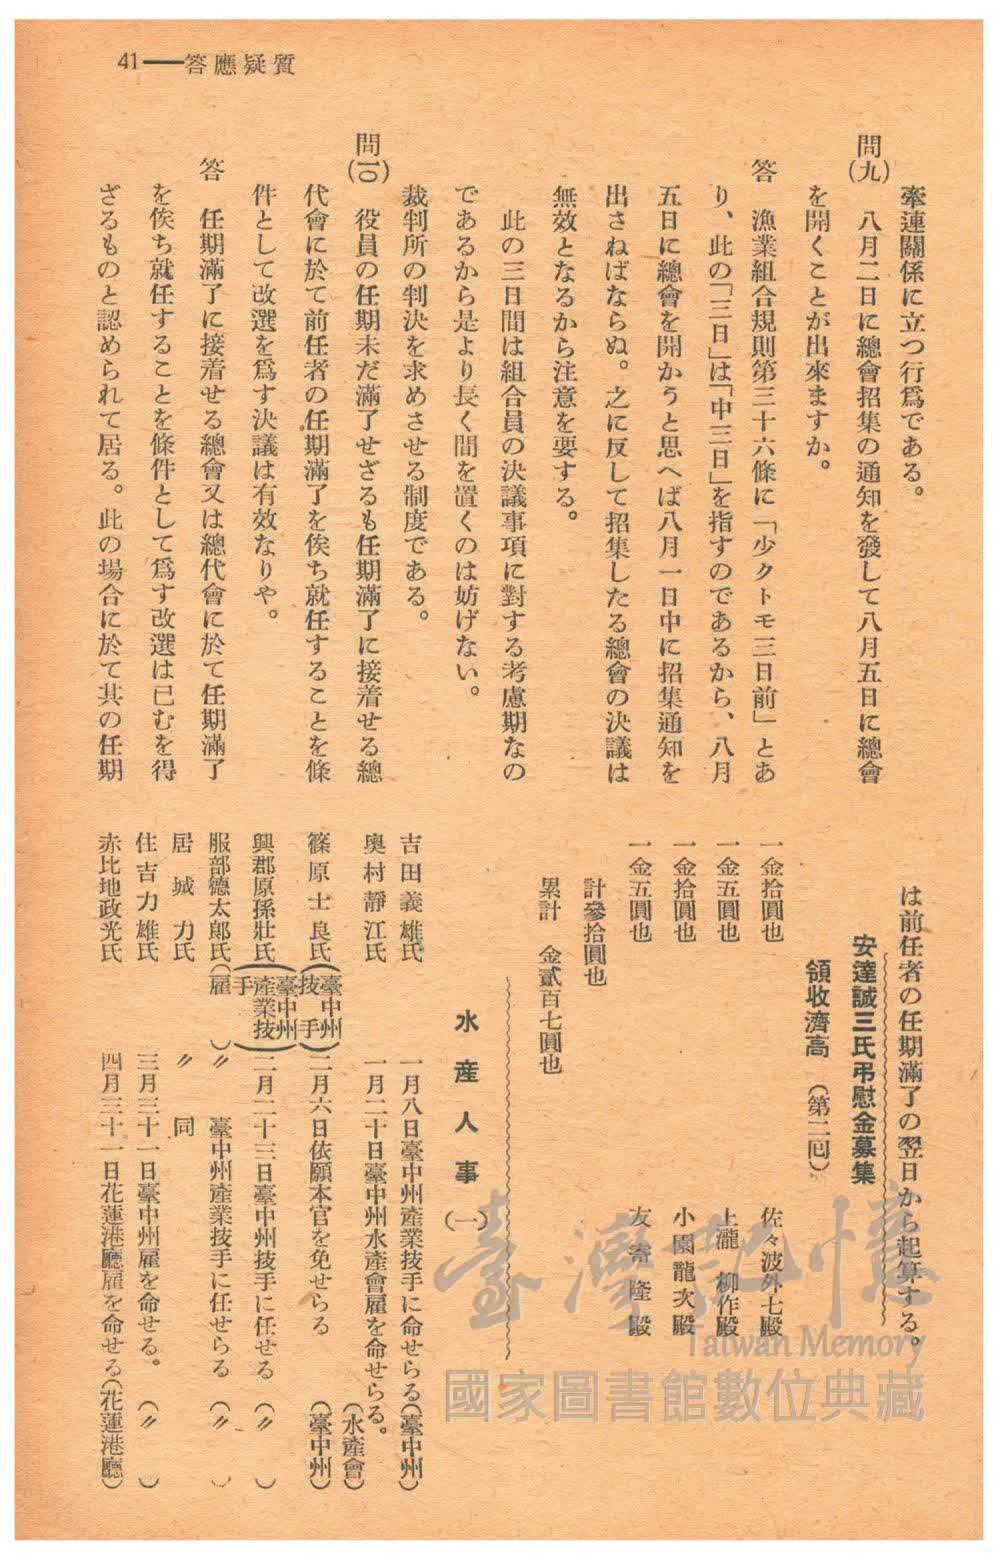 41——答應疑質
牽連關係に立つ行爲である。
問(九) 八月二日に總會招集の通知を發して八月五日に總會
を開くことが出來ますか。
答 漁業組合規則第三十六條に「少クトモ三日前」とあ
り、此の「三日」は「中三日」を指すのであるから、八月
五日に總會を開かうと思へば八月一日中に招集通知を
出さねばならぬ。之に反して招集したる總會の決議は
無效となるから注意を要する。
此の三日間は組合員の決議事項に對する考慮期なの
であるから是より長く間を置くのは妨げない。
裁判所の判決を求めさせる制度である。
問(一〇) 役員の任期未だ滿了せざるも任期滿了に接着せる總
代會に於て前任者の任期滿了を俟ち就任することを條
件として改選を爲す決議は有效なりや。
答 任期滿了に接着せる總會又は總代會に於て任期滿了
を俟ち就任することを條件として爲す改選は已むを得
ざるものと認められて居る。此の場合に於て其の任期
は前任者の任期滿了の翌日から起算する。
安達誠三氏弔慰金募集
領收濟高 (第二回)
一金拾圓也 佐々波外七殿
一金五圓也 上瀧 柳作殿
一金拾圓也 小園龍次殿
一金五圓也 友寄 隆殿
計參拾圓也
累計 金貳百七圓也
水産人事 (一)
吉田義雄氏 一月八日臺中州産業技手に命せらる(臺中州)
奥村靜江氏 一月二十日臺中州水產會雇を命せらる。(水產會)
篠原士良氏(臺中州技手) 二月六日依願本官を免せらる (臺中州)
興郡原孫壯氏(臺中州產業技手) 二月二十三日臺中州技手に任せる (〃)
服部德太郎氏(雇) 〃 臺中州產業技手に任せらる (〃)
居城 力氏 〃 同
住吉力雄氏 三月三十一日臺中州雇を命せる。(〃)
赤比地政光氏 四月三十一日花蓮港廳雇を命せる(花蓮港廳)
臺灣記憶
Taiwan Memory
國家圖書館數位典藏